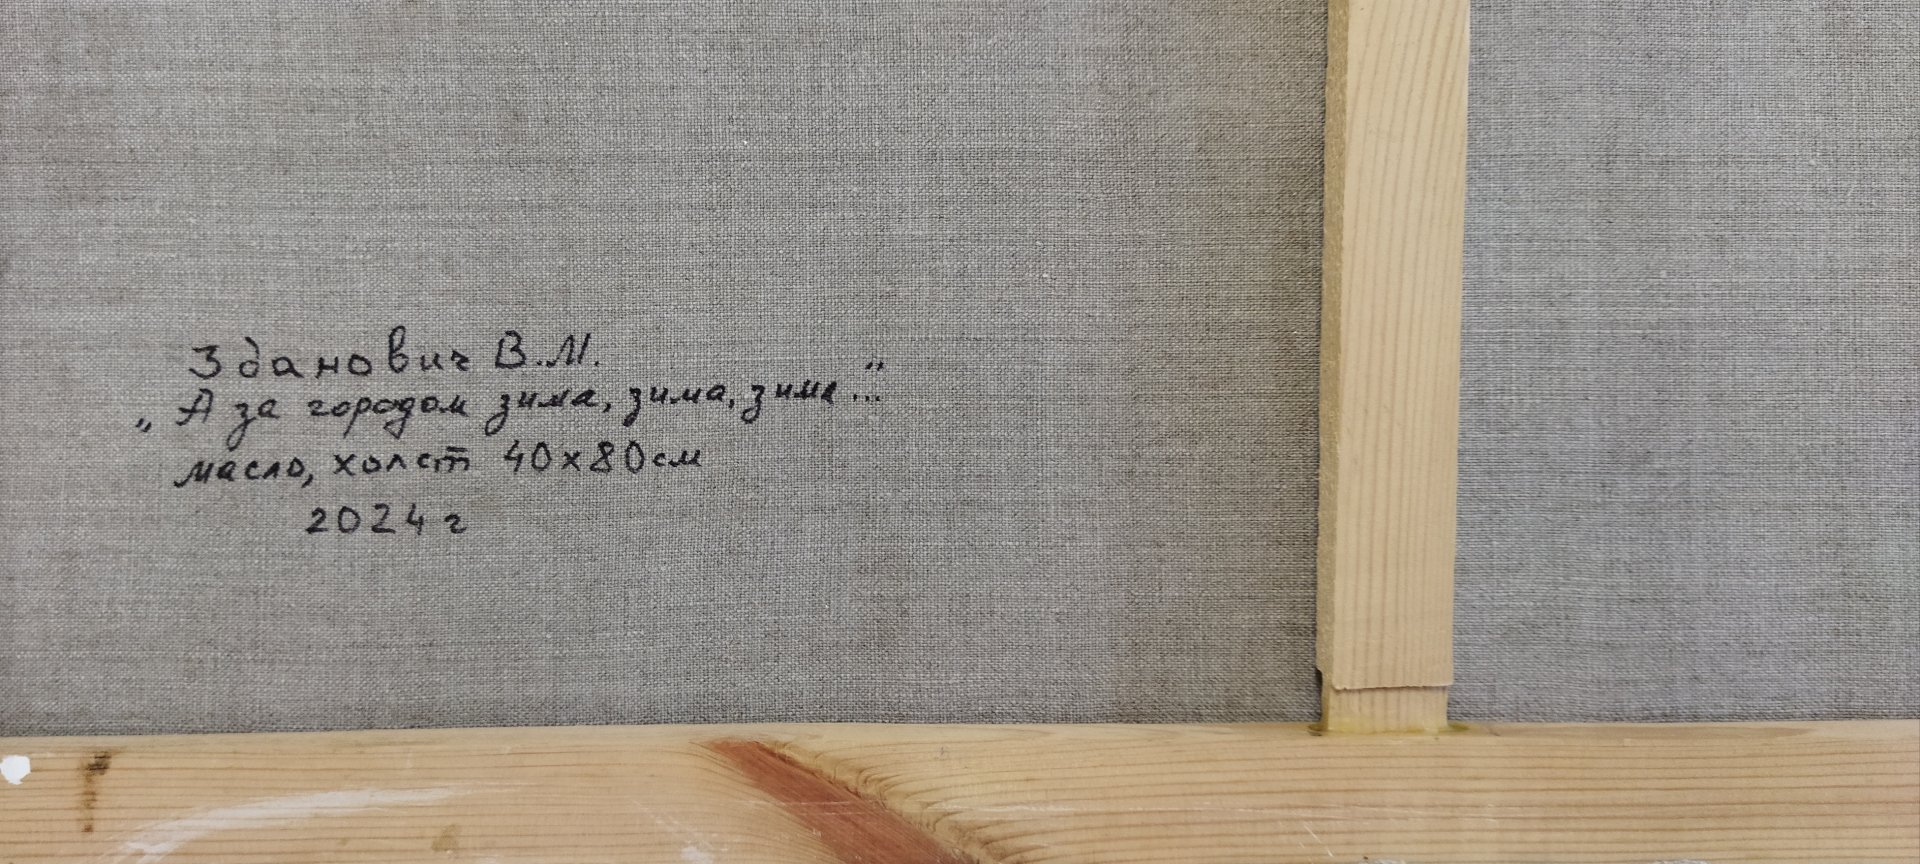 Зданович В.М.
„А за городом зима, зима, зима..."
масло, холст 40х80см
2024 г